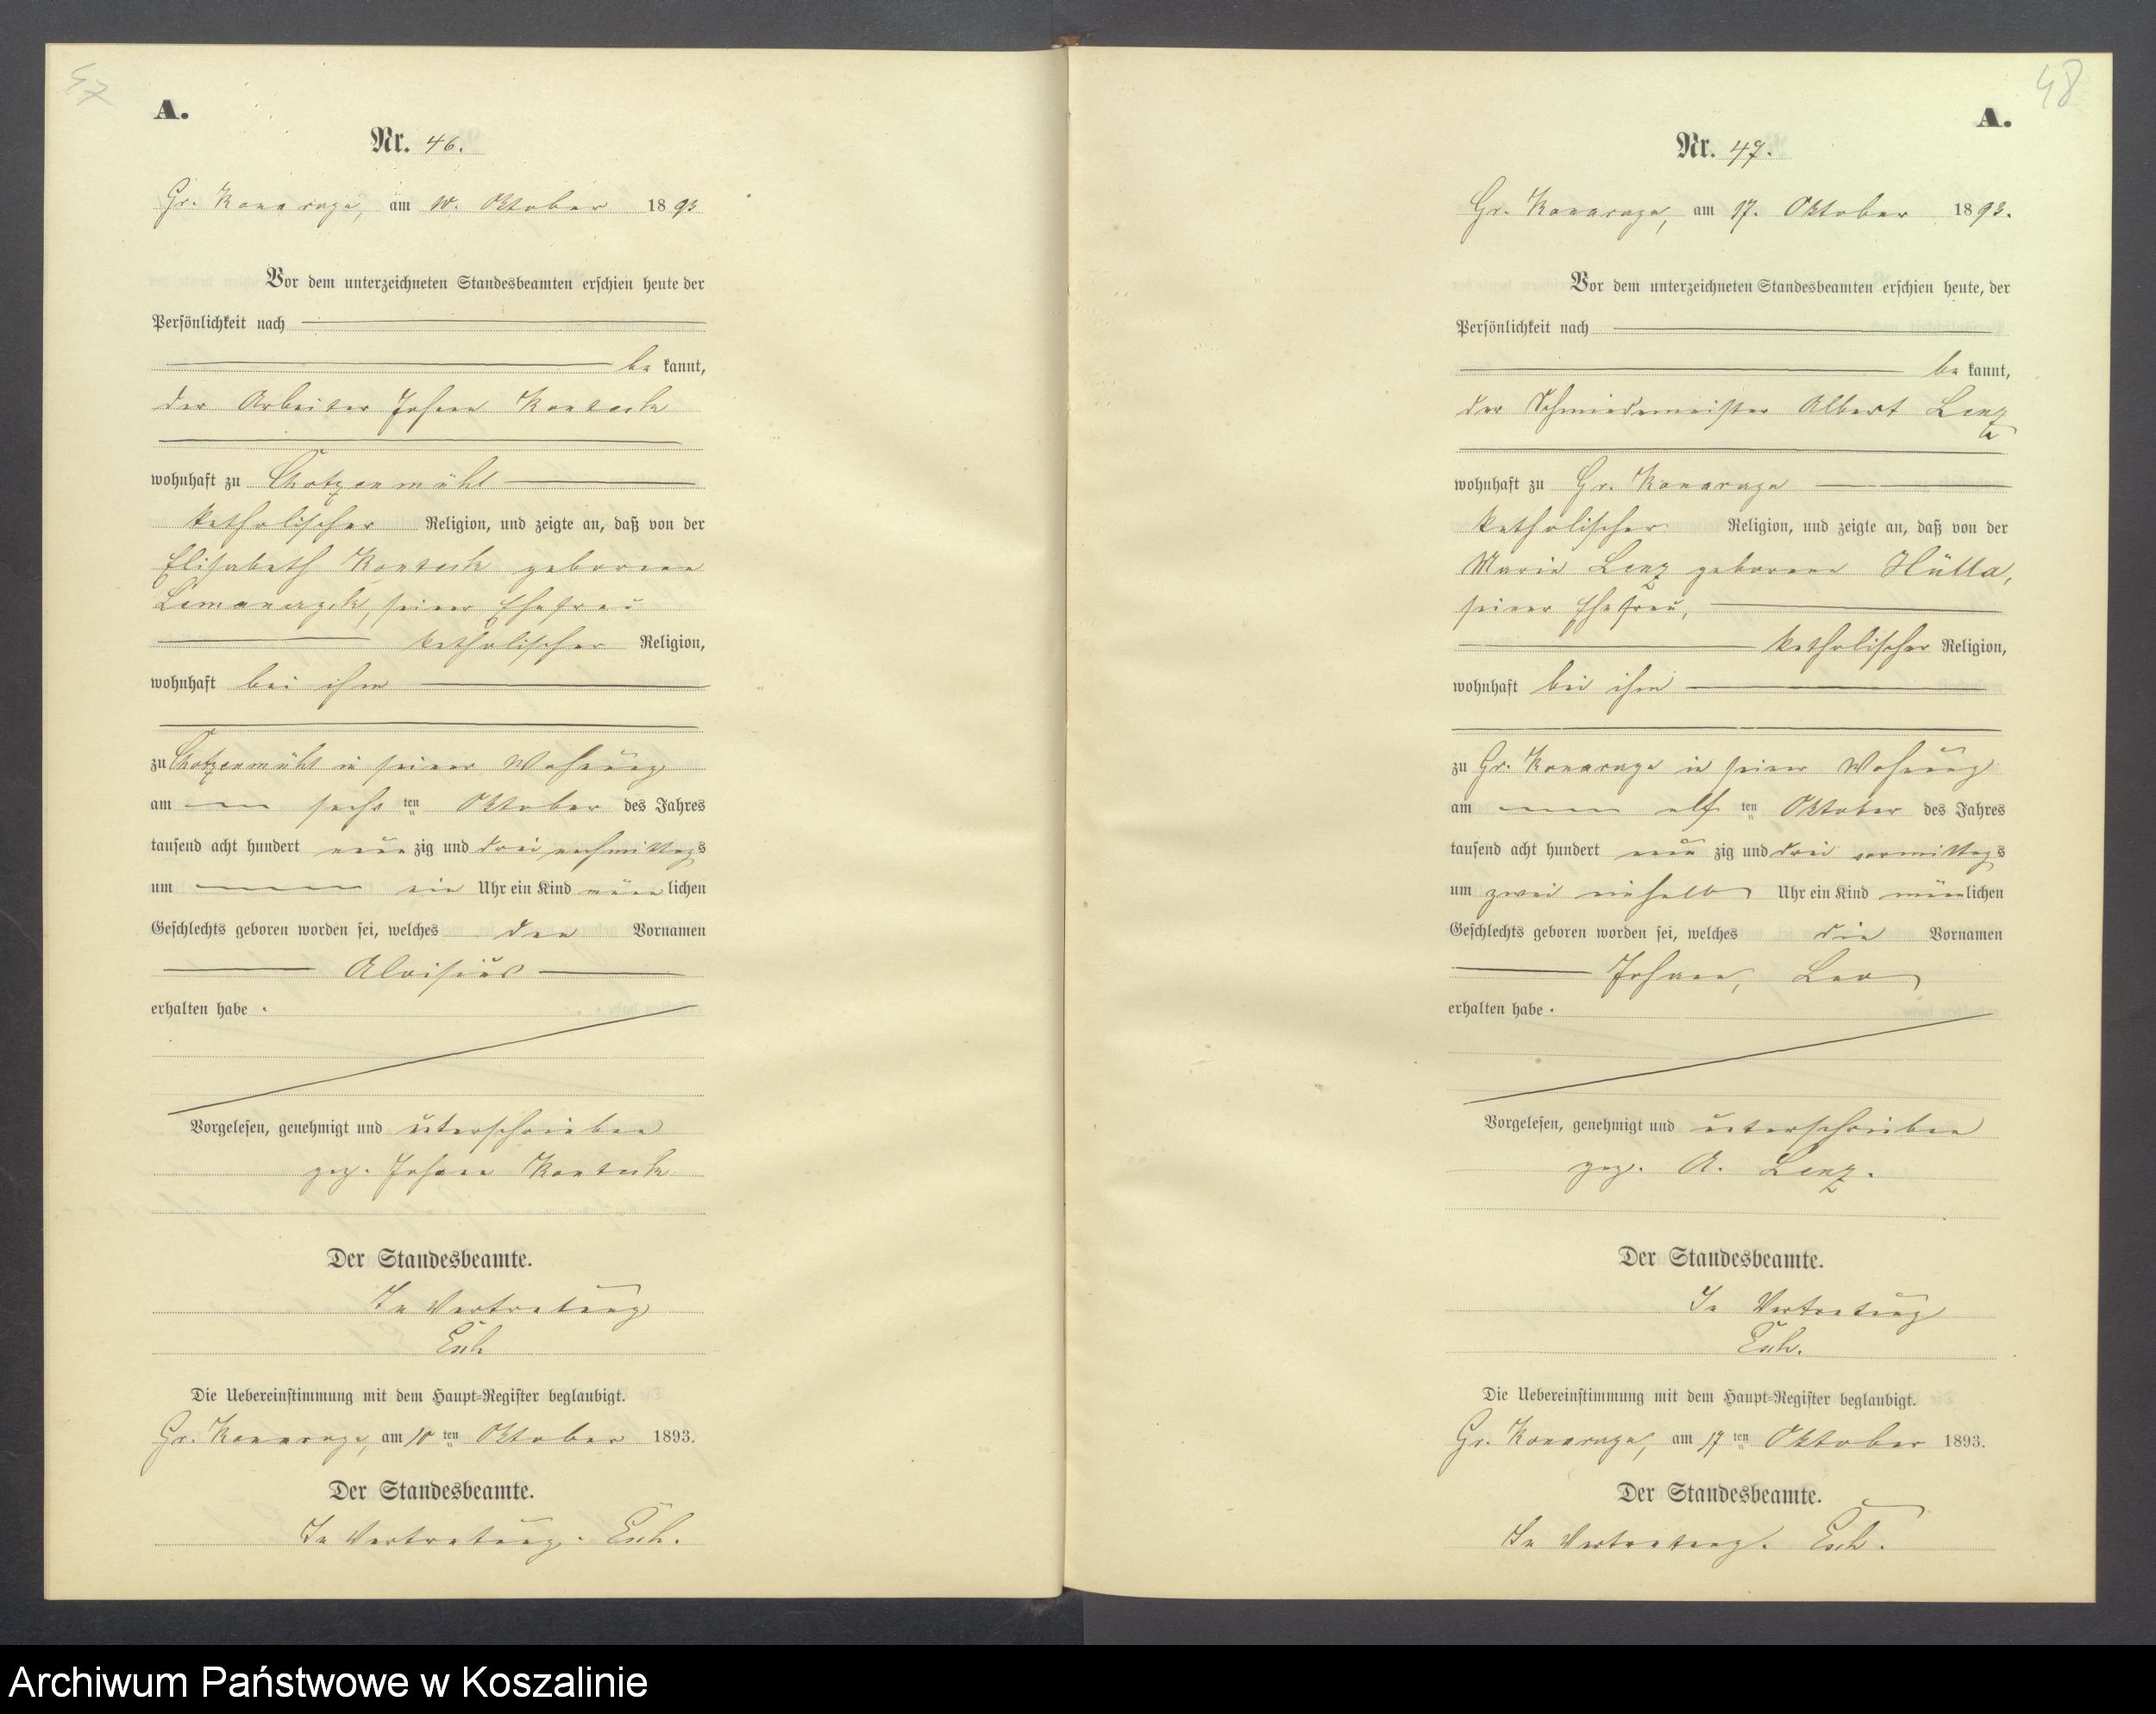 47
A.
Nr. 46.
Gr. Konarzyn, am 10. Oktober 1893
Vor dem unterzeichneten Standesbeamten erschien heute der
Persönlichkeit nach
be kannt,
der Arbeiter Johann
wohnhaft zu Chotzenmühl
katholischer Religion, und zeigte an, daß von der
Elisabeth geborene
seiner Ehefrau
katholischer Religion,
wohnhaft bei ihm
zu Chotzenmühl in seiner Wohnung
am sechs ten Oktober des Jahres
tausend acht hundert neun zig und drei nachmittags
um ein Uhr ein Kind männ lichen
Geschlechts geboren worden sei, welches den Vornamen
Aloisius
erhalten habe .
Vorgelesen, genehmigt und unterschrieben
gez. Johann
Der Standesbeamte.
In Vertretung
Die Uebereinstimmung mit dem Haupt-Register beglaubigt.
Gr. Konarzyn, am 10 ten Oktober 1893.
Der Standesbeamte.
In Vertretung.
48
A.
Nr. 47.
Gr. Konarzyn, am 17. Oktober 1893.
Vor dem unterzeichneten Standesbeamten erschien heute, der
Persönlichkeit nach
be kannt,
der Schmiedemeister Albert Lenz
wohnhaft zu Gr. Konarzyn
katholischer Religion, und zeigte an, daß von der
Maria Lenz geborene Hülla,
seiner Ehefrau,
katholischer Religion,
wohnhaft bei ihm
zu Gr. Konarzyn in seiner Wohnung
am elf ten Oktober des Jahres
tausend acht hundert neun zig und drei vormittags
um zwei einhalb Uhr ein Kind männlichen
Geschlechts geboren worden sei, welches die Vornamen
Johann, Leo
erhalten habe .
Vorgelesen, genehmigt und unterschrieben
gez. A. Lenz.
Der Standesbeamte.
In Vertretung
Die Uebereinstimmung mit dem Haupt-Register beglaubigt.
Gr. Konarzyn, am 17 ten Oktober 1893.
Der Standesbeamte.
In Vertretung.
Archiwum Państwowe w Koszalinie